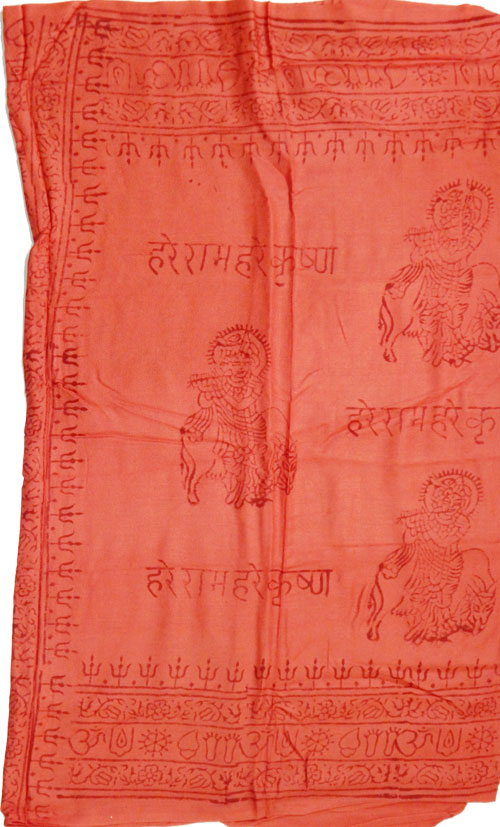 हरे राम हरे कृष्ण
हरे राम हरे कृ
हरे राम हरे कृष्ण